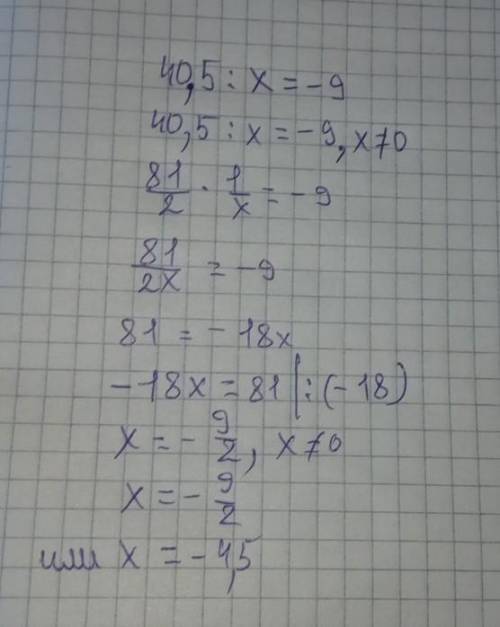 40,5 : x = -9
40,5 : x = -9, x ≠ 0
81/2 · 1/x = -9
81/2x = -9
81 = -18x
-18x = 81 | : (-18)
x = - 9/2, x ≠ 0
x = - 9/2
или x = -4,5